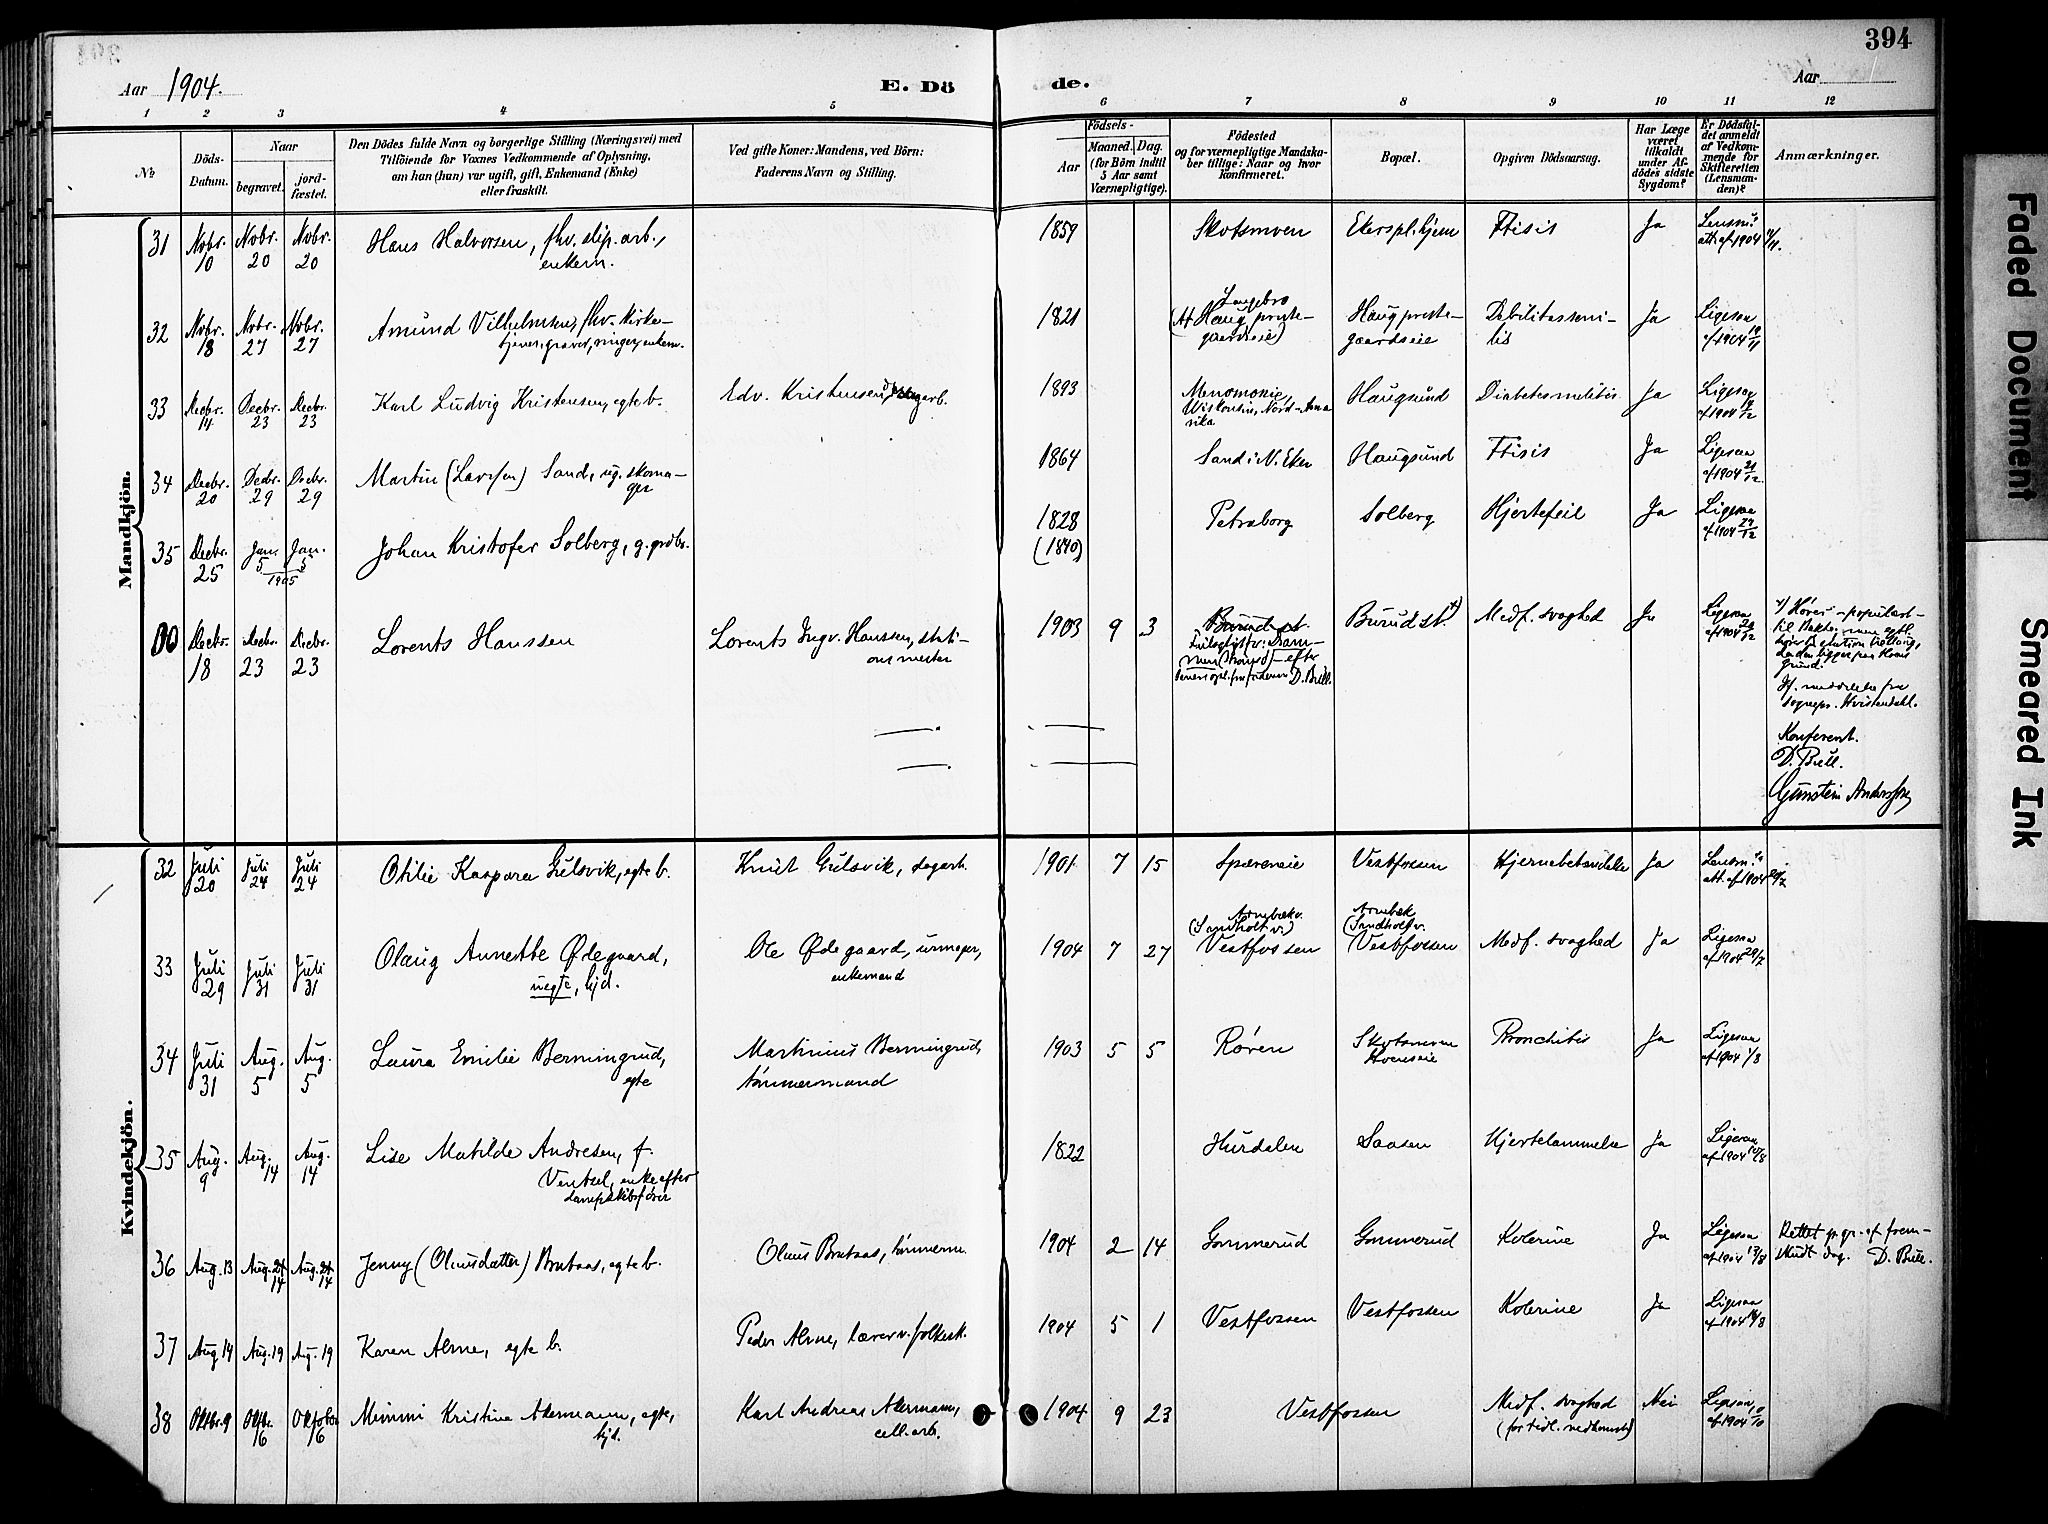 394
Aar 1904.
E. Dö
de.
Aar
1 2 3 4 5 6 7 8 9 10 11 12
No
Döds-Datum.
Naar
begravet.
jord-fæstet.
Den Dödes fulde Navn og borgerlige Stilling (Næringsvei) med
Tilföiende for Voxnes Vedkommende af Oplysning,
om han (hun) var ugift, gift, Enkemand (Enke)
eller fraskilt.
Ved gifte Koner: Mandens, ved Börn:
Faderens Navn og Stilling.
Födsels-
Aar
Maaned. Dag.
(for Börn indtil
5 Aar samt
Værnepligtige).
Födested
og for værnepligtige Mandska-
ber tillige: Naar og hvor
Konfirmeret.
Bopæl.
Opgiven Dödsaarsag.
Har Læge
været
tilkaldt
under Af-
dödes sidste
Sygdom?
Er Dödsfal-
det anmeldt
af Vedkom-
mende for
Skifteretten
(Lensman-
den)?
Anmærkninger.
Mandkjön.
31 Novbr. 10 Novbr. 20 Novbr. 20 Hans Halvorsen, fhv. slip. arb., enkem. 1859 Skotsmoen Ekerspl.hjem Ftisis Ja Lensm.s att. af 1904
32 Novbr. 18 Novbr. 27 Novbr. 27 Amund Vilhelmsen, fhv. kirke-
tjener, graver, ringer, enkem. 1821 Langebro (Af Haug preste-
gaardseie) Haug preste-
gaardseie Debilitas seni-
lis Ja Ligesaa af 1904 19/11
33 Decbr. 14 Decbr. 23 Decbr. 23 Karl Ludvig Kristensen, egte b. Edv. Kristensen, 1893 Menomonie,
Wiskonsin, Nord-Ame
rika Haugsund Diabetes militis Ja Ligesaa af 1904
34 Decbr. 20 Decbr. 29 Decbr. 29 Martin (Larsen) Sand, ug. skoma-
ger 1864 Sand i N. Eker Haugsund Ftisis Ja Ligesaa af 1904 21/12
35 Decbr. 25 Jan. 5 Jan. 5 1905 Johan Kristofer Solberg, g. grdbr. 1828
(1840) Petraborg Solberg Hjertefeil Ja Ligesaa af 1904 29/12
00 Decbr. 18 Decbr. 23 Decbr. 23 Lorents Hanssen Lorents Ingv. Hanssen, stati-
onsmester 1903 9 3 Burud st. Burud st. Medf. svaghed Ja Ligesaa af 1904
Hører populært
til
grund.
Jf. meddelelse fra
sognepr. Hvistendahl.
Konferent.
D. Bull.
Gunstein Anderssen
Kvindekjön.
32 Juli 20 Juli 24 Juli 24 Otilie Kaspara Gulsvik, egte b. Knut Gulsvik, sagarb. 1901 7 15 Spæreneie Vestfossen Hjernebetændelse Ja Lensm.s att. af 1904 20/7
33 Juli 29 Juli 31 Juli 31 Olaug Annette Ødegaard,
uegte, hjd. Ole Ødegaard, urmager,
enkemand 1904 7 27 (Sandholt v.) Vestfossen (Sandholt v. Vestfossen Medf. svaghed Ja Ligesaa af 1904 29/7
34 Juli 31 Aug. 5 Aug. 5 Laura Emilie Bermingrud,
egte Martinius Bermingrud,
tømmermand 1903 5 5 Røren Skotsmoen
Hoenseie Bronchitis Ja Ligesaa af 1904 1/8
35 Aug. 9 Aug. 14 Aug. 14 Lise Matilde Andresen, f.
Ventzel, enke efter
dampskibsfører 1822 Hurdalen Saasen Hjertelammelse Ja Ligesaa af 1904 10/8
36 Aug. 13 Aug. 14 Aug. 14 Jenny (Olausdatter) Brataas, egte b. Olaus Brataas, tømmerm. 1904 2 14 Gommerud Gommerud Kolerine Ja Ligesaa af 1904 13/8 Rettet p. gr. af frem-
skudt dag. D. Bull.
37 Aug. 14 Aug. 19 Aug. 19 Karen Alme, egte b. Peder Alme, lærer v. folkesk. 1904 5 1 Vestfossen Vestfossen Kolerine Ja Ligesaa af 1904 14/8
38 Oktbr. 9 Oktbr. 16 Oktober 16 Mimmi Kristine Akermann, egte,
hjd. Karl Andreas Akermann,
cell. arb. 1904 9 23 Vestfossen Medf. svaghed
(for tidl. nedkomst) Nei Ligesaa af 1904
Faded Document
Smeared Ink